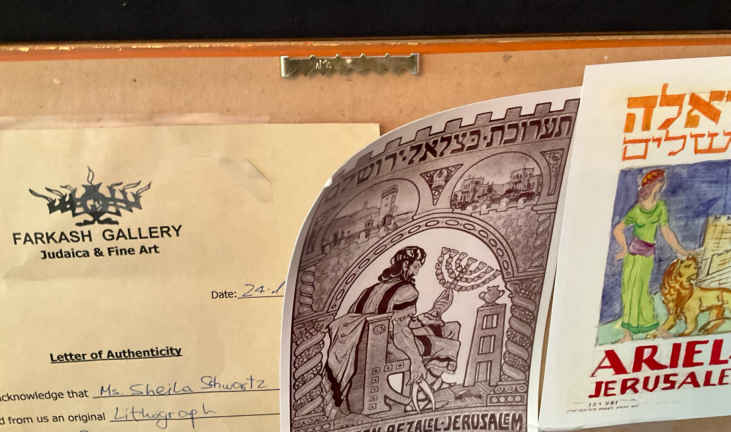 FARKASH GALLERY
Judaica & Fine Art
Date: 24.
Letter of Authenticity
acknowledge that Ms. Sheila Shwartz
from us an original Lithograph
תערוכת·בצלאל·ירוש
BEZALEL-JERUSALEM
ARIEL-
JERUSALE